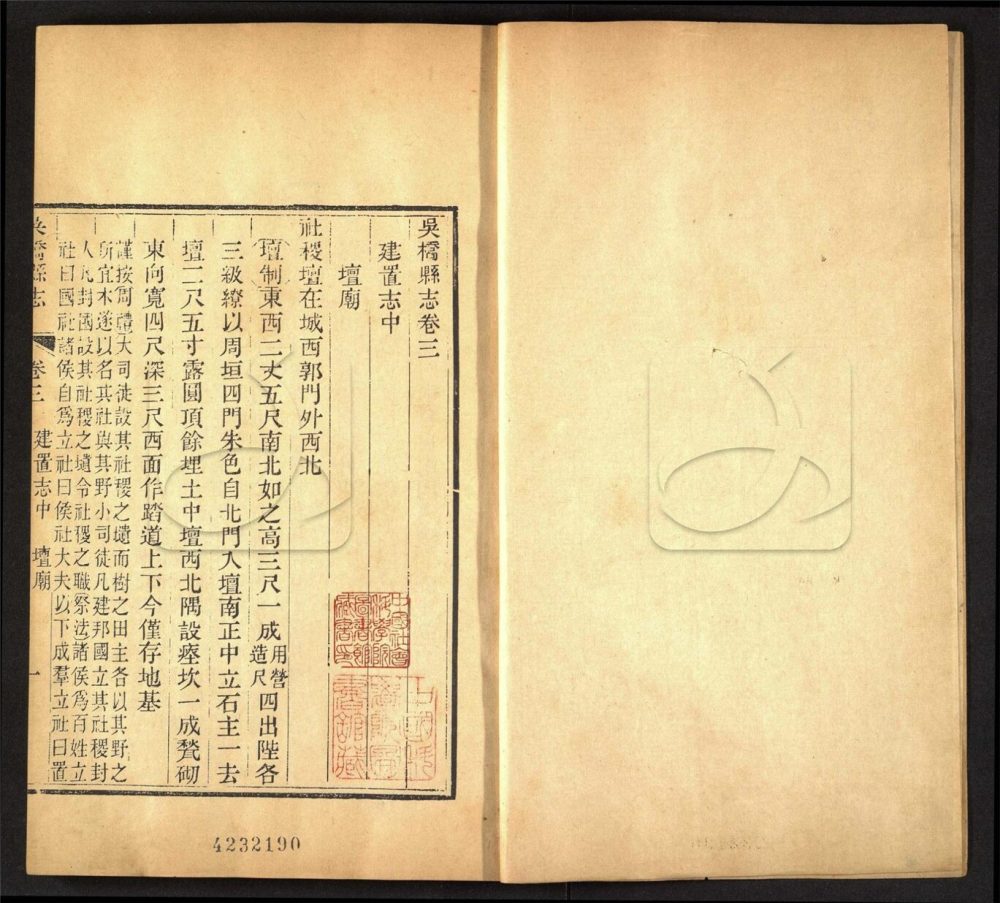 吳橋縣志卷三
建置志中
壇廟
社稷壇在城西郭門外西北
壇制東西二丈五尺南北如之高三尺一成用營造尺四出陛各
三級繚以周垣四門朱色自北門入壇南正中立石主一去
壇二尺五寸露圓頂餘埋土中壇西北隅設瘞坎一成甃砌
東向寬四尺深三尺西面作踏道上下今僅存地基
謹按周禮大司徒設其社稷之壝而樹之田主各以其野之
所宜木遂以名其社與其野小司徒凡建邦國立其社稷封
人凡封國設其社稷之壝令社稷之職祭法諸侯爲百姓立
社曰國社諸侯自爲立社曰侯社大夫以下成羣立社曰置
吳橋縣志 卷三 建置志中 壇廟 一
中國社會科學院圖書館藏書印
4232190